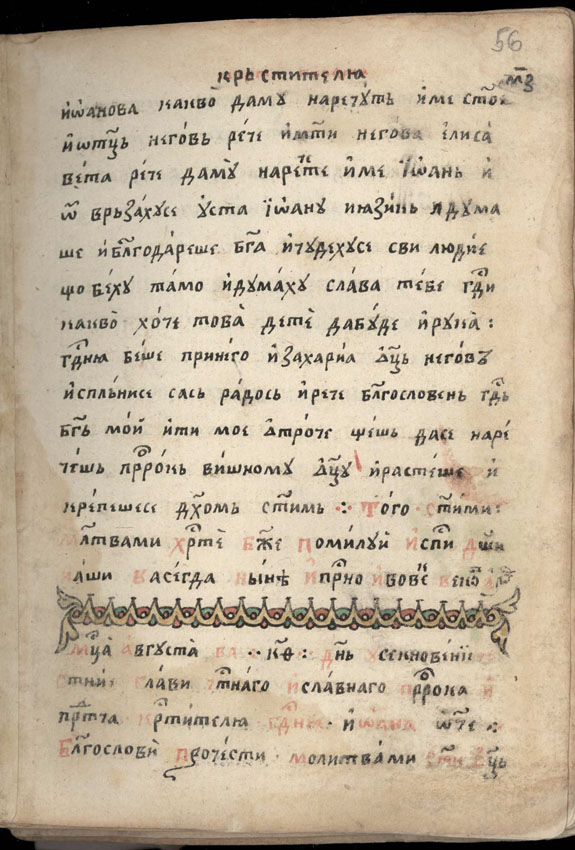 56
крьстителꙗ м҃з
и҆ѡа́нова како̀ даму наре́ꙋть и҆ме ст҃ое
и҆ѿц҃ь него́вь рече и҆ м҃ти него́ва є҆лиса́
ве́та ре́че дамꙋ̀ наре́кте и҆ме і҆ѡ҆ань и҆
ѿврьза́хꙋсе ꙋ҆ста і҆ѡ҆анꙋ и҆ꙗзи́кь
ше и҆ бл҃года́реше бг҃а и҆чꙋде́хꙋсе сви лю́дїе
що бе́хꙋ та́мо и҆дꙋма́хꙋ сла́ва те́бе гд҃и
какво̀ хо́че това̀ детѐ дабꙋ́де и҆рꙋка̀ :
гд҃нꙗ бе́ше прине́го и҆заха́риа ѿц҃ь него́въ
и҆спль́нисе сась ра́дось и҆ре́че бл҃гослове́нь гд҃ь
бг҃ь мо́й и҆ти мое ѻ҆тро́че щешь дасе наре
че́шь пр҃ро́кь ви́шномꙋ ѿц҃ꙋ и҆расте́ше и҆
кре́пешесе дх҃омь ст҃имь :· То́го ст҃ими·
мл҃твами хр҃тѐ бж҃е поми́лꙋй и҆сп҃си дш҃и
наши васегда ны́нꙗ и҆при́но и҆вове́к
мц҃а а҆вгꙋста̀ · к҃ѳ : дн҃ь секнове́нїе
ст҃нїе гла́ви чт҃на́го и҆сла́внаго пр҃ро́ка и҆
пр҃тча кр҃ти́телꙗ гд҃нꙗ · и҆ѡ҆ана ѿче :
Бл҃гослови̇̀ проче́сти · моли́твами ст҃и ѿц҃ь